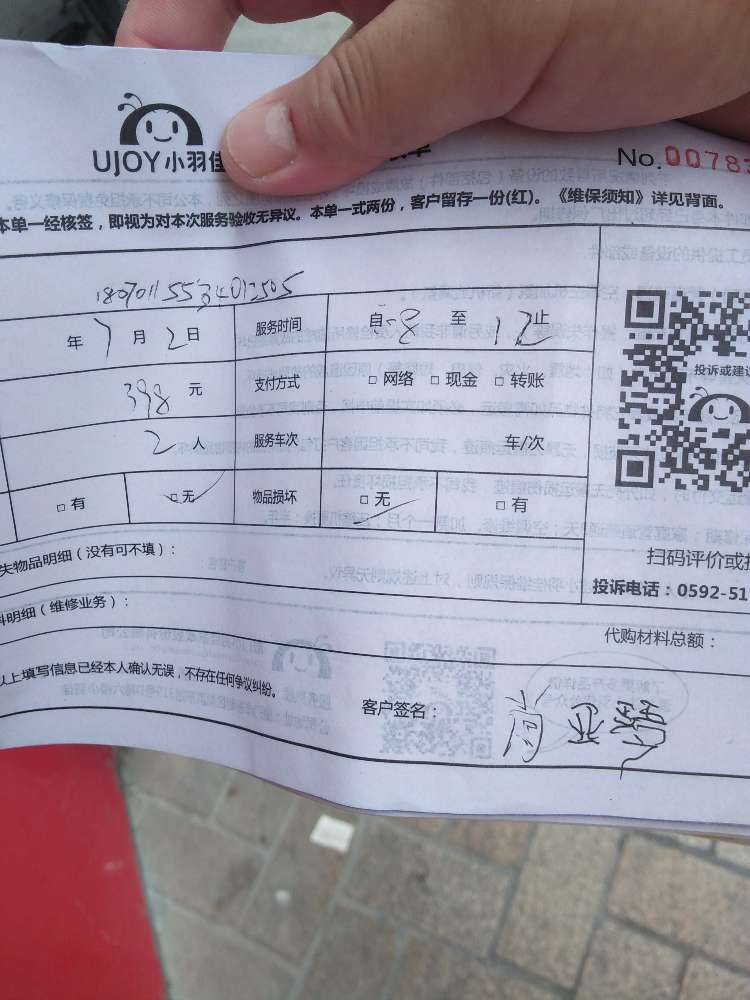 UJOY小羽佳
No.0078
本单一经核签，即视为对本次服务验收无异议。本单一式两份，客户留存一份(红)。《维保须知》详见背面。
年7月2日 服务时间 自8至12止
398元 支付方式 □网络 □现金 □转账
投诉或建议
2人 服务车次 车/次
□有 □无 物品损坏 □无 □有
失物品明细（没有可不填）：
扫码评价或
投诉电话：0592-51
料明细（维修业务）：
代购材料总额：
以上填写信息已经本人确认无误，不存在任何争议纠纷。
客户签名：